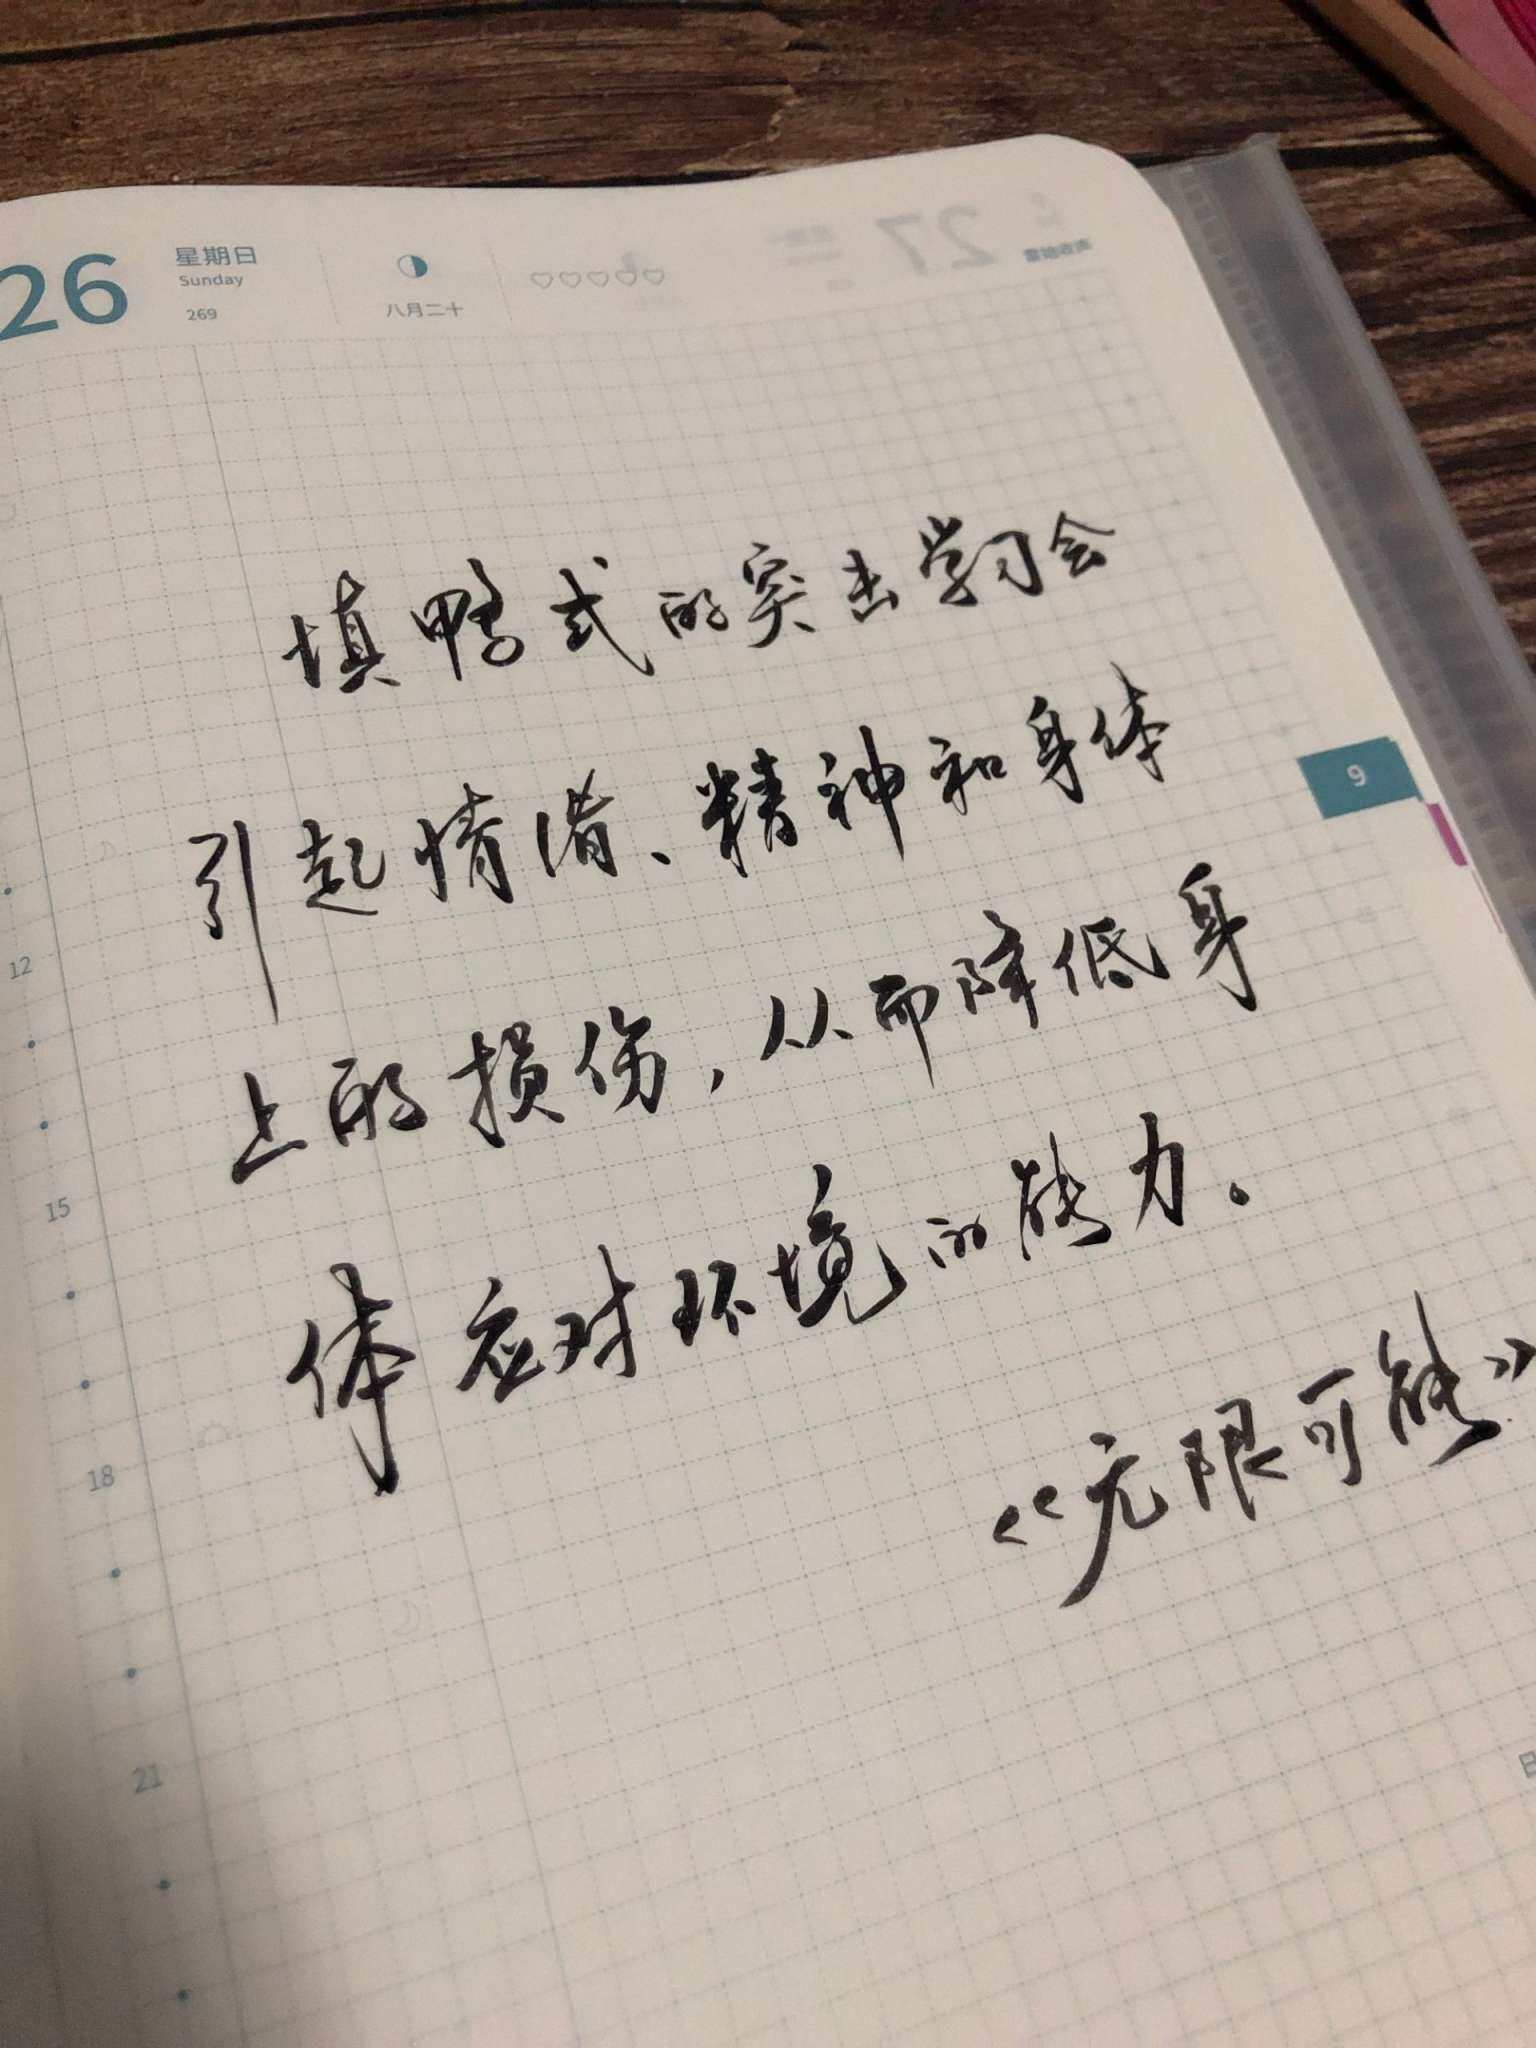 26 星期日 八月二十
Sunday
269
填鸭式的突击学习会
引起情绪、精神和身体
9
上的损伤,从而降低身
12
体应对环境的能力。
15
《无限可能》
18
21